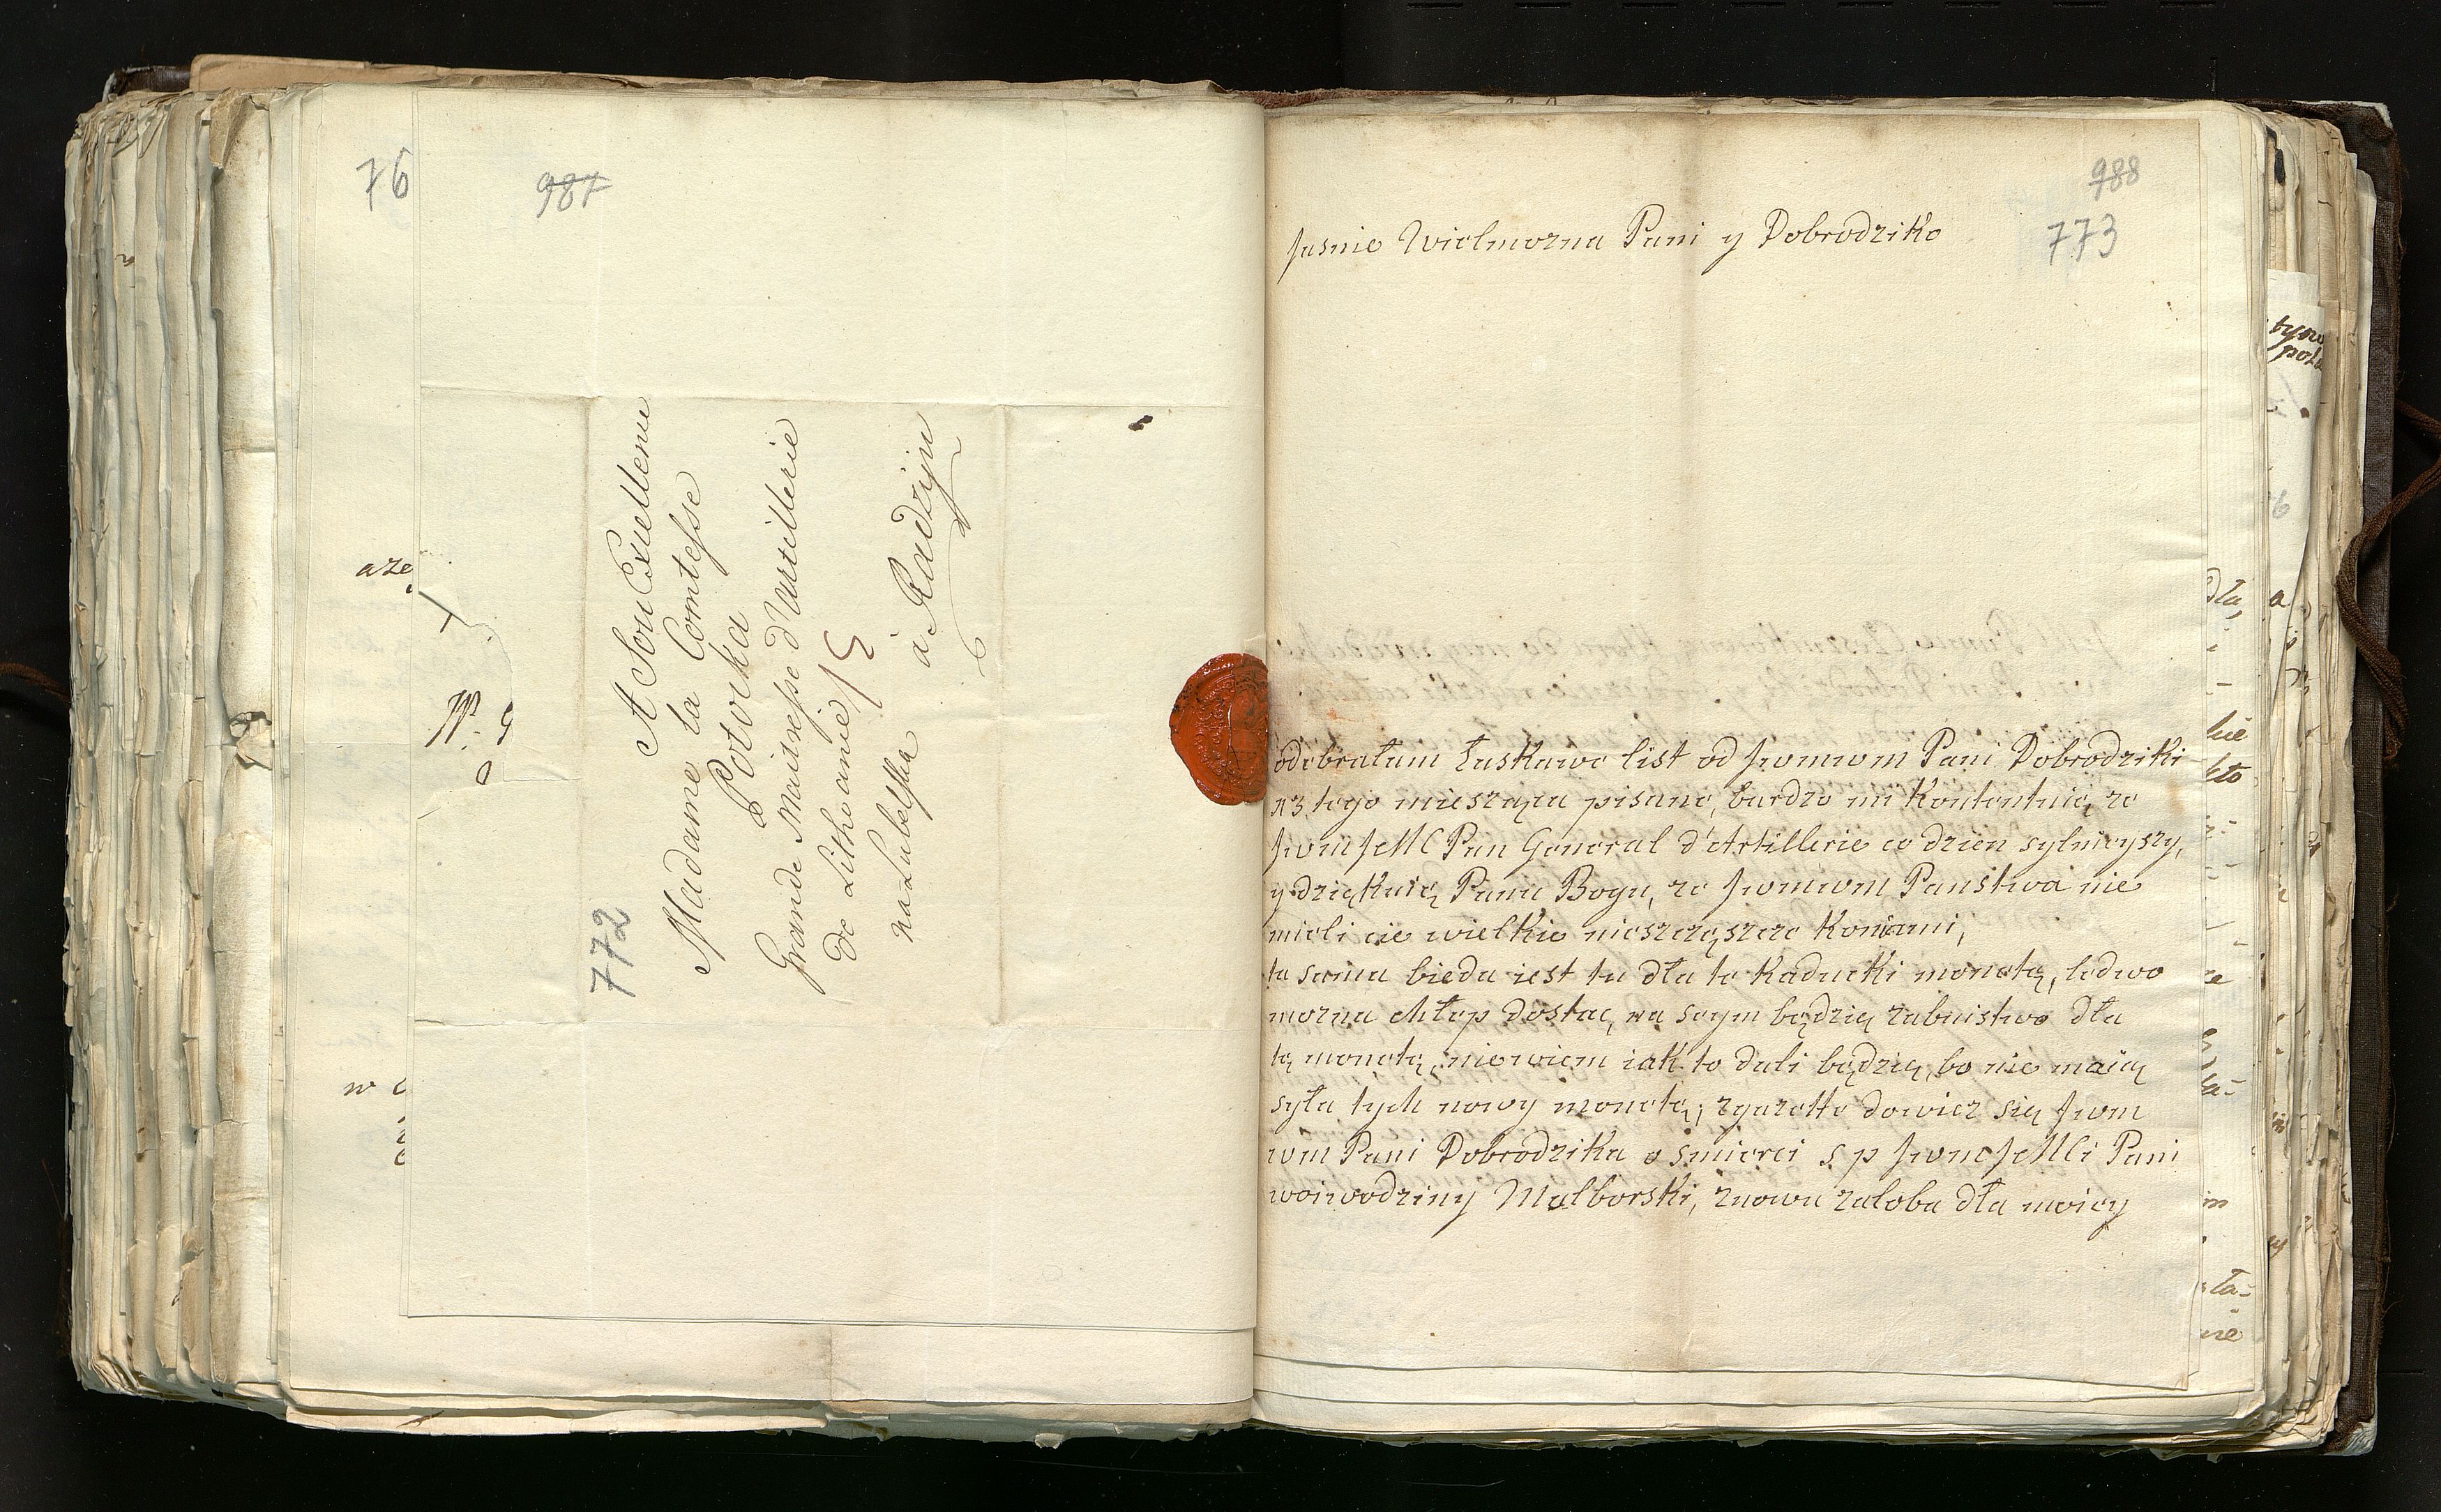 76
987
aze
No. 9
w
772
A Son Excellence
Madame la Comtesse
Potocka
Grande Maitresse d'Artillerie
de Lithuanie
na Lubelska
à Radzijn
988
773
Jasnie Wielmozna Pani y Dobrodziko
odebralam Łaskawe list od Jwmwm Pani Dobrodziki
13 tego mieszaca pisane, bardzo mi Kontentuię, ze
Jwm JeMC Pan General d'Artillerie co dzien sylnieyszy,
y dziękuię Panu Bogu, ze Jwmwm Panstwa nie
mieli cie wielkie nieszczęszcze Koniami,
ta sama bieda iest tu dła te Kaducki monetę, ledwo
mozna chłap dostac, na seym będzię zabuistwo dła
tę monetę, niewiem iak to dali będzię, bo nie maię
syła tych nowy monetę; zgazette dowiez się Jwm
wm Pani Dobrodzika o smierci s p Jwmc JeMCi Pani
woiwodziny Malborski, znowu zaloba dła moiey
dla,
kie
kto
ła-